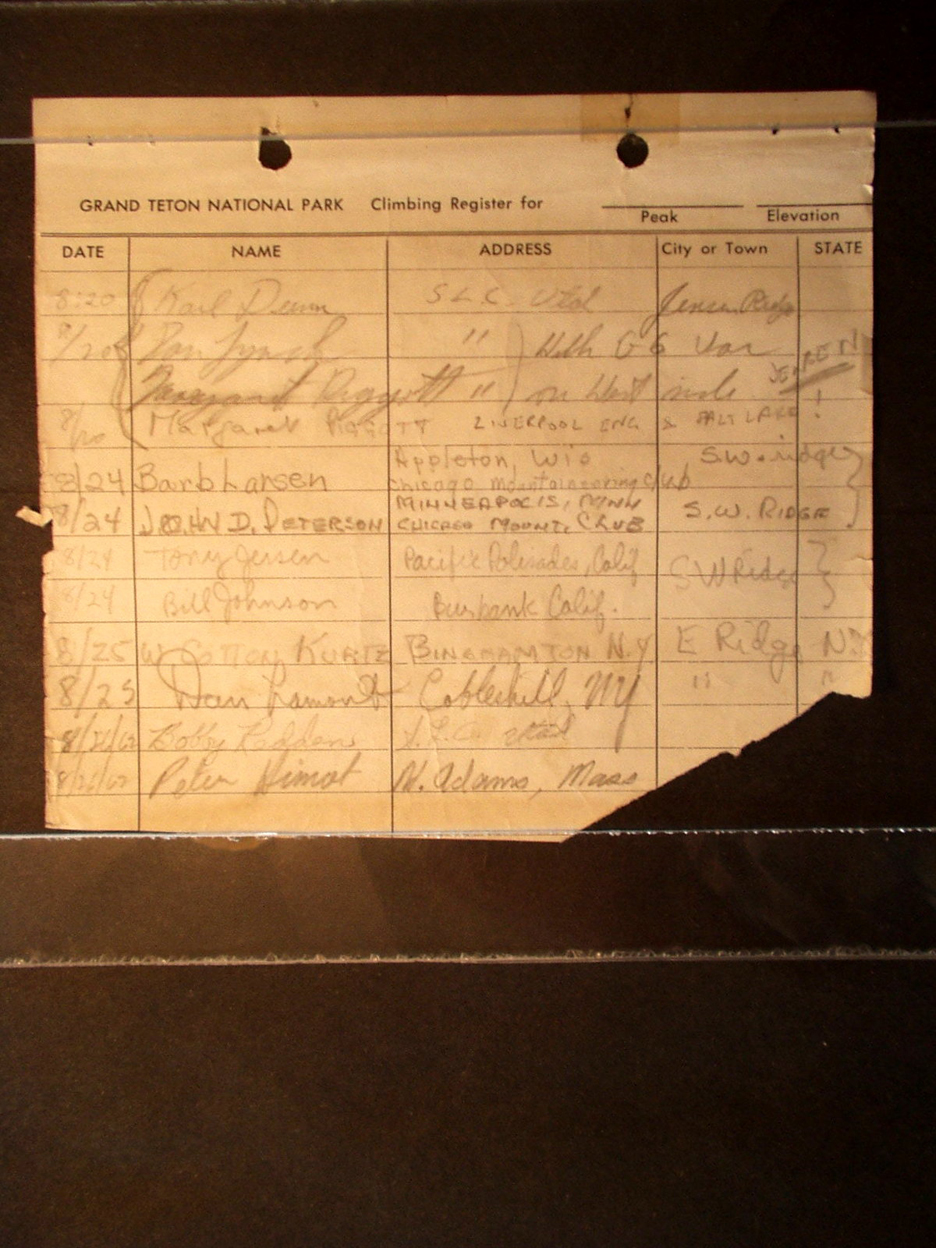 GRAND TETON NATIONAL PARK Climbing Register for
Peak Elevation
DATE NAME ADDRESS City or Town STATE
8:20 Karl Dunn S L C. Utah Jensen Ridge
8/20 Dan "
With G G Var
Margaret Piggott " on West side JENSEN
8/20 Margaret PIGGOTT LIVERPOOL ENG & SALT LAKE !
Appleton, Wis S.W. ridge
8/24 Barb Larsen Chicago Mountaineering Club
MINNEAPOLIS, MINN
8/24 JOHN D. PETERSON CHICAGO MOUNT. CLUB S.W. RIDGE
8/24 Tony Jensen Pacific Palisades, Calif SW Ridge
8/24 Bill Johnson Burbank Calif.
8/25 W COTTON KURTZ BINGHAMTON N.Y E Ridge N.Y
8/25 Dan Lamont Cobleskill, NY " "
8/26/62 Bobby S.L.C. Utah
8/26/62 Peter N. Adams, Mass